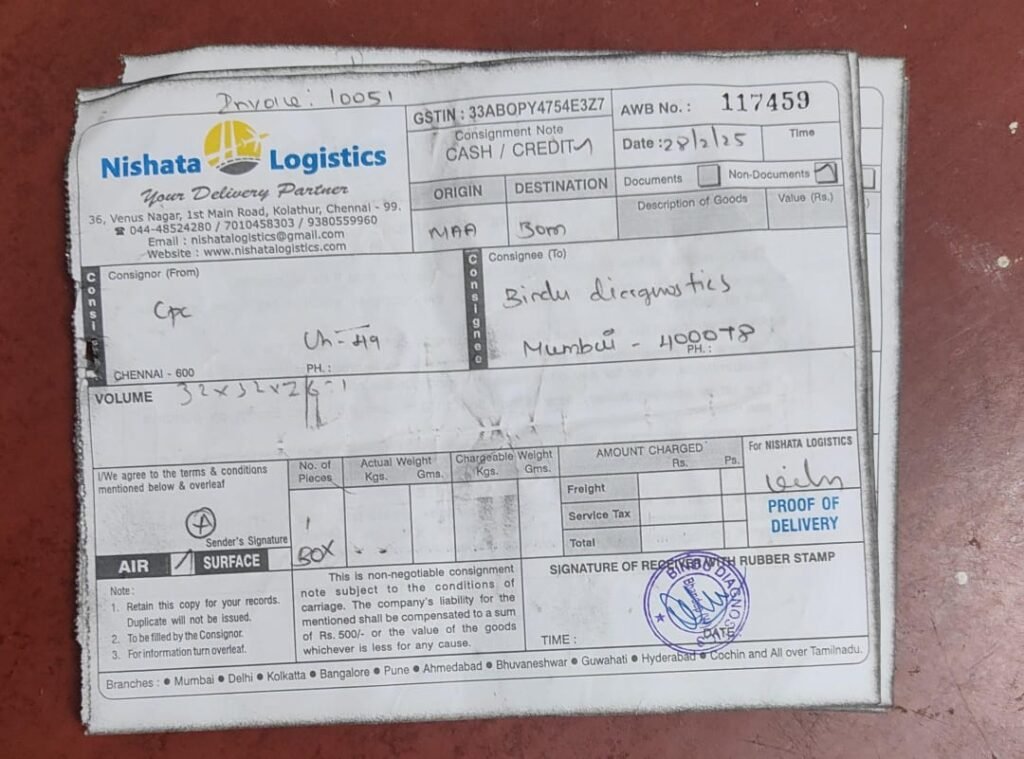 Invoice: 10051
Nishata Logistics
Your Delivery Partner
36, Venus Nagar, 1st Main Road, Kolathur, Chennai - 99.
☎ 044-48524280 / 7010458303 / 9380559960
Email : nishatalogistics@gmail.com
Website : www.nishatalogistics.com
GSTIN : 33ABOPY4754E3Z7
Consignment Note
CASH / CREDIT
AWB No. : 117459
Date : 28/2/25
Time
ORIGIN DESTINATION
MAA Bom
Documents Non-Documents
Description of Goods Value (Rs.)
Consignor (From)
Cpc
Ch-49
CHENNAI - 600 PH. :
Consignee
Consignee (To)
Bindu diagnostics
Mumbai - 400078
PH. :
VOLUME 32x32x26
I/We agree to the terms & conditions
mentioned below & overleaf
Sender's Signature
AIR SURFACE
No. of
Pieces
1
BOX
Actual Weight
Kgs. Gms.
Chargeable Weight
Kgs. Gms.
AMOUNT CHARGED
Rs. Ps.
Freight
Service Tax
Total
For NISHATA LOGISTICS
PROOF OF
DELIVERY
Note :
1. Retain this copy for your records.
Duplicate will not be issued.
2. To be filled by the Consignor.
3. For information turn overleaf.
This is non-negotiable consignment
note subject to the conditions of
carriage. The company's liability for the
mentioned shall be compensated to a sum
of Rs. 500/- or the value of the goods
whichever is less for any cause.
SIGNATURE OF RECEIVED WITH RUBBER STAMP
BINDU DIAGNOS
TIME : DATE
Branches : ● Mumbai ● Delhi ● Kolkatta ● Bangalore ● Pune ● Ahmedabad ● Bhuvaneshwar ● Guwahati ● Hyderabad ● Cochin and All over Tamilnadu.